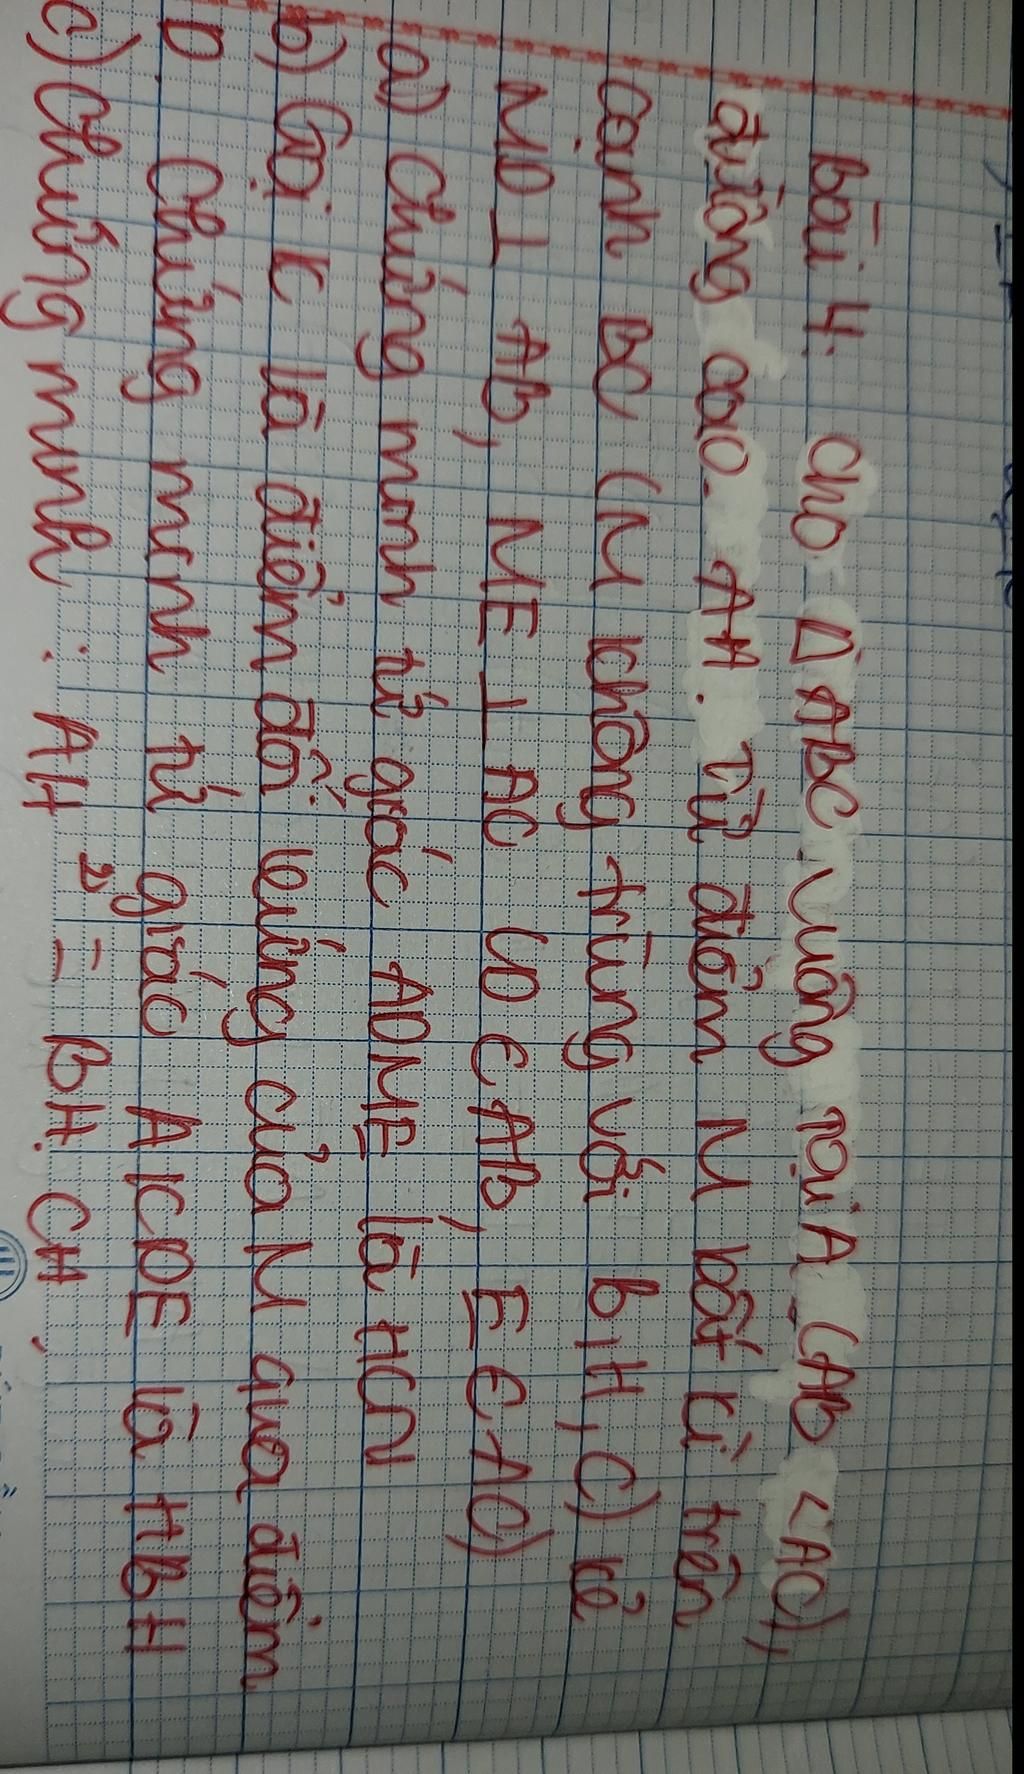 Bài 4. Cho Δ ABC vuông tại A (AB < AC),
đường cao AH. Từ điểm M bất kì trên
cạnh BC (M không trùng với B, H, C) kẻ
MD ⊥ AB, ME ⊥ AC (D ∈ AB, E ∈ AC)
a) Chứng minh tứ giác ADME là HCN
b) Gọi K là điểm đối xứng của M qua điểm
D. Chứng minh tứ giác AKDE là HBH
c) Chứng minh : AH² = BH. CH.